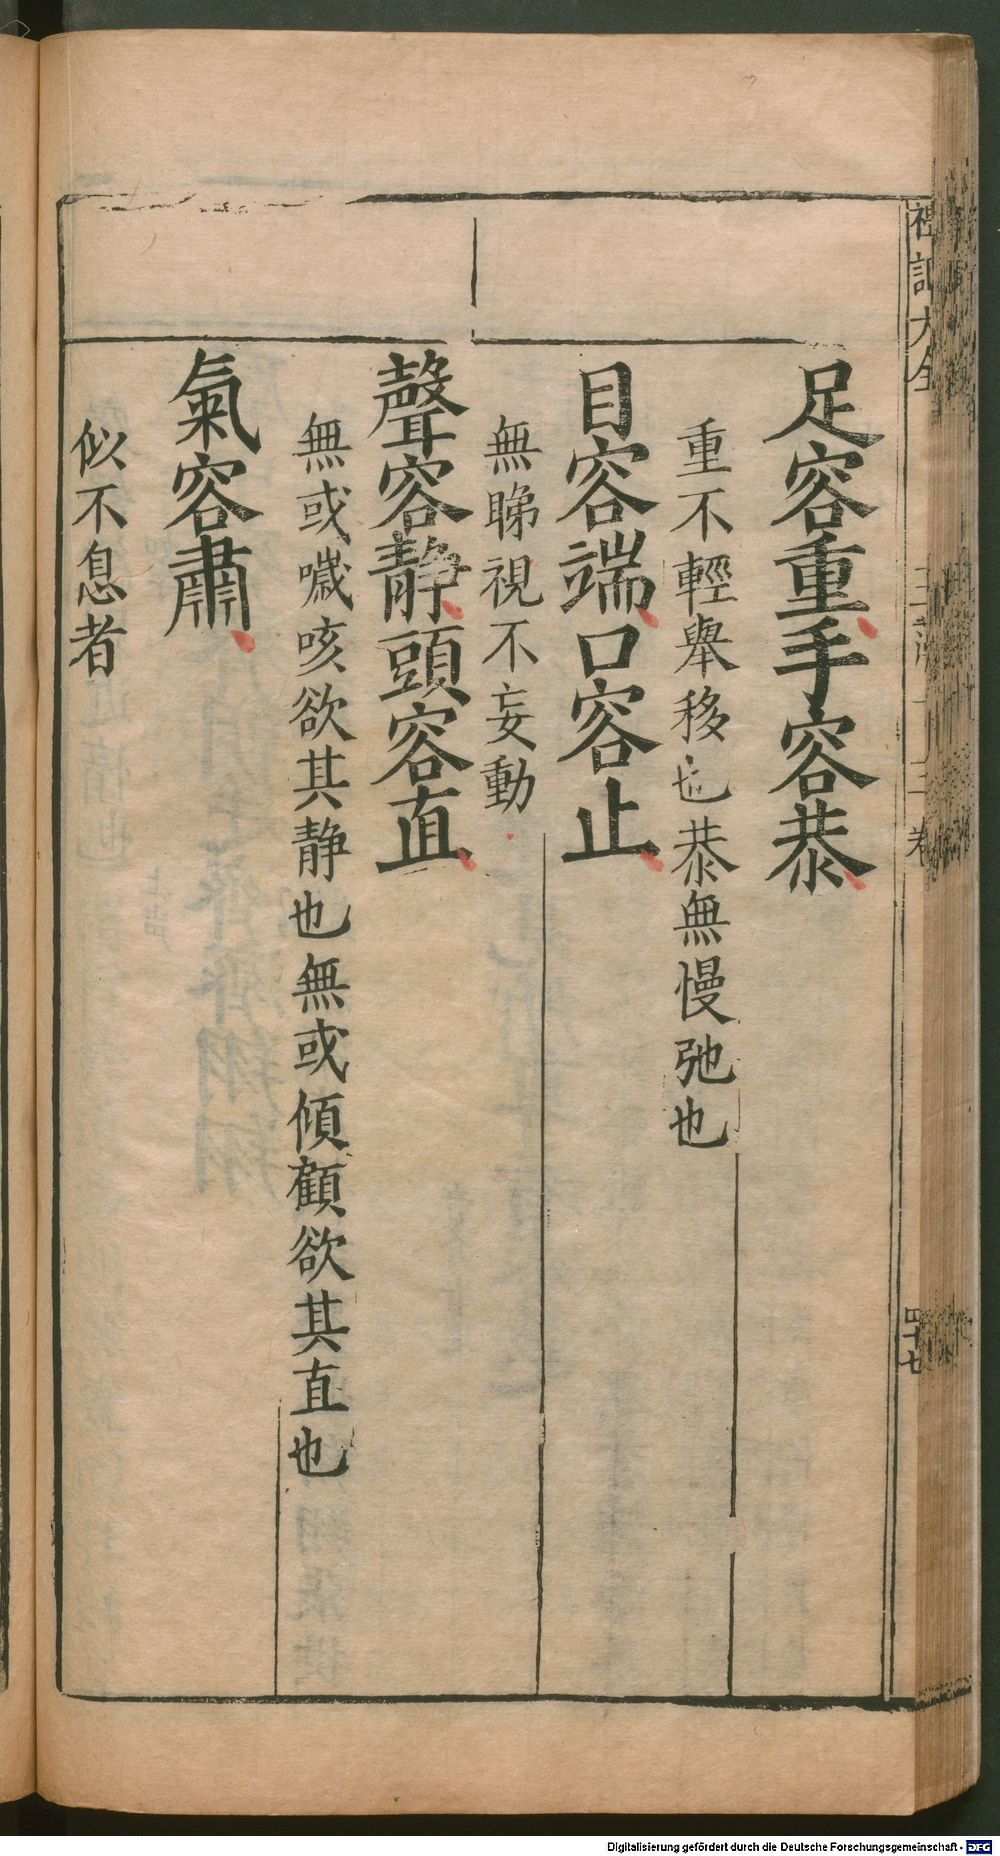 禮記大全
四十七
足容重手容恭
重不輕舉移也恭無慢弛也
目容端口容止
無睇視不妄動
聲容静頭容直
無或噦咳欲其静也無或傾顧欲其直也
氣容肅
似不息者
Digitalisierung gefördert durch die Deutsche Forschungsgemeinschaft - DFG